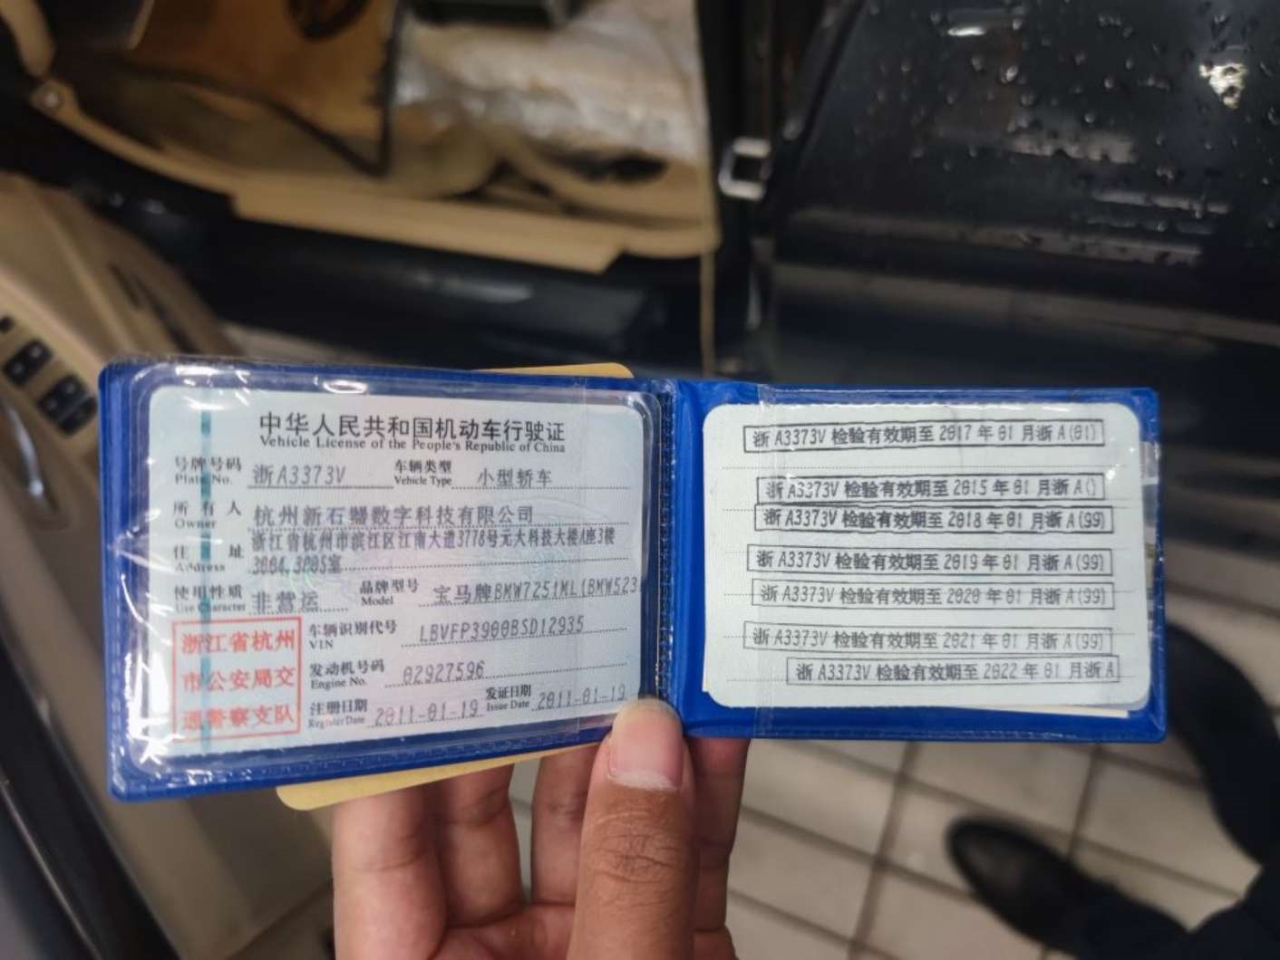 中华人民共和国机动车行驶证
Vehicle License of the People's Republic of China
号牌号码 浙A3373V 车辆类型 小型轿车
Plate No. Vehicle Type
所有人 杭州新石器数字科技有限公司
Owner
住址 浙江省杭州市滨江区江南大道3778号元大科技大楼A座3楼
Address 3004,3005室
使用性质 非营运 品牌型号 宝马牌BMW7251ML(BMW523
Use Character Model
浙江省杭州
市公安局交
通警察支队
车辆识别代号 LBVFP3900BSD12935
VIN
发动机号码 02927596
Engine No.
注册日期 2011-01-19 发证日期 2011-01-19
Register Date Issue Date
浙 A3373V 检验有效期至 2017 年 01 月浙 A(01)
浙 A3373V 检验有效期至 2015 年 01 月浙 A()
浙 A3373V 检验有效期至 2018 年 01 月浙 A(99)
浙 A3373V 检验有效期至 2019 年 01 月浙 A(99)
浙 A3373V 检验有效期至 2020 年 01 月浙 A(99)
浙 A3373V 检验有效期至 2021 年 01 月浙 A(99)
浙 A3373V 检验有效期至 2022 年 01 月浙 A